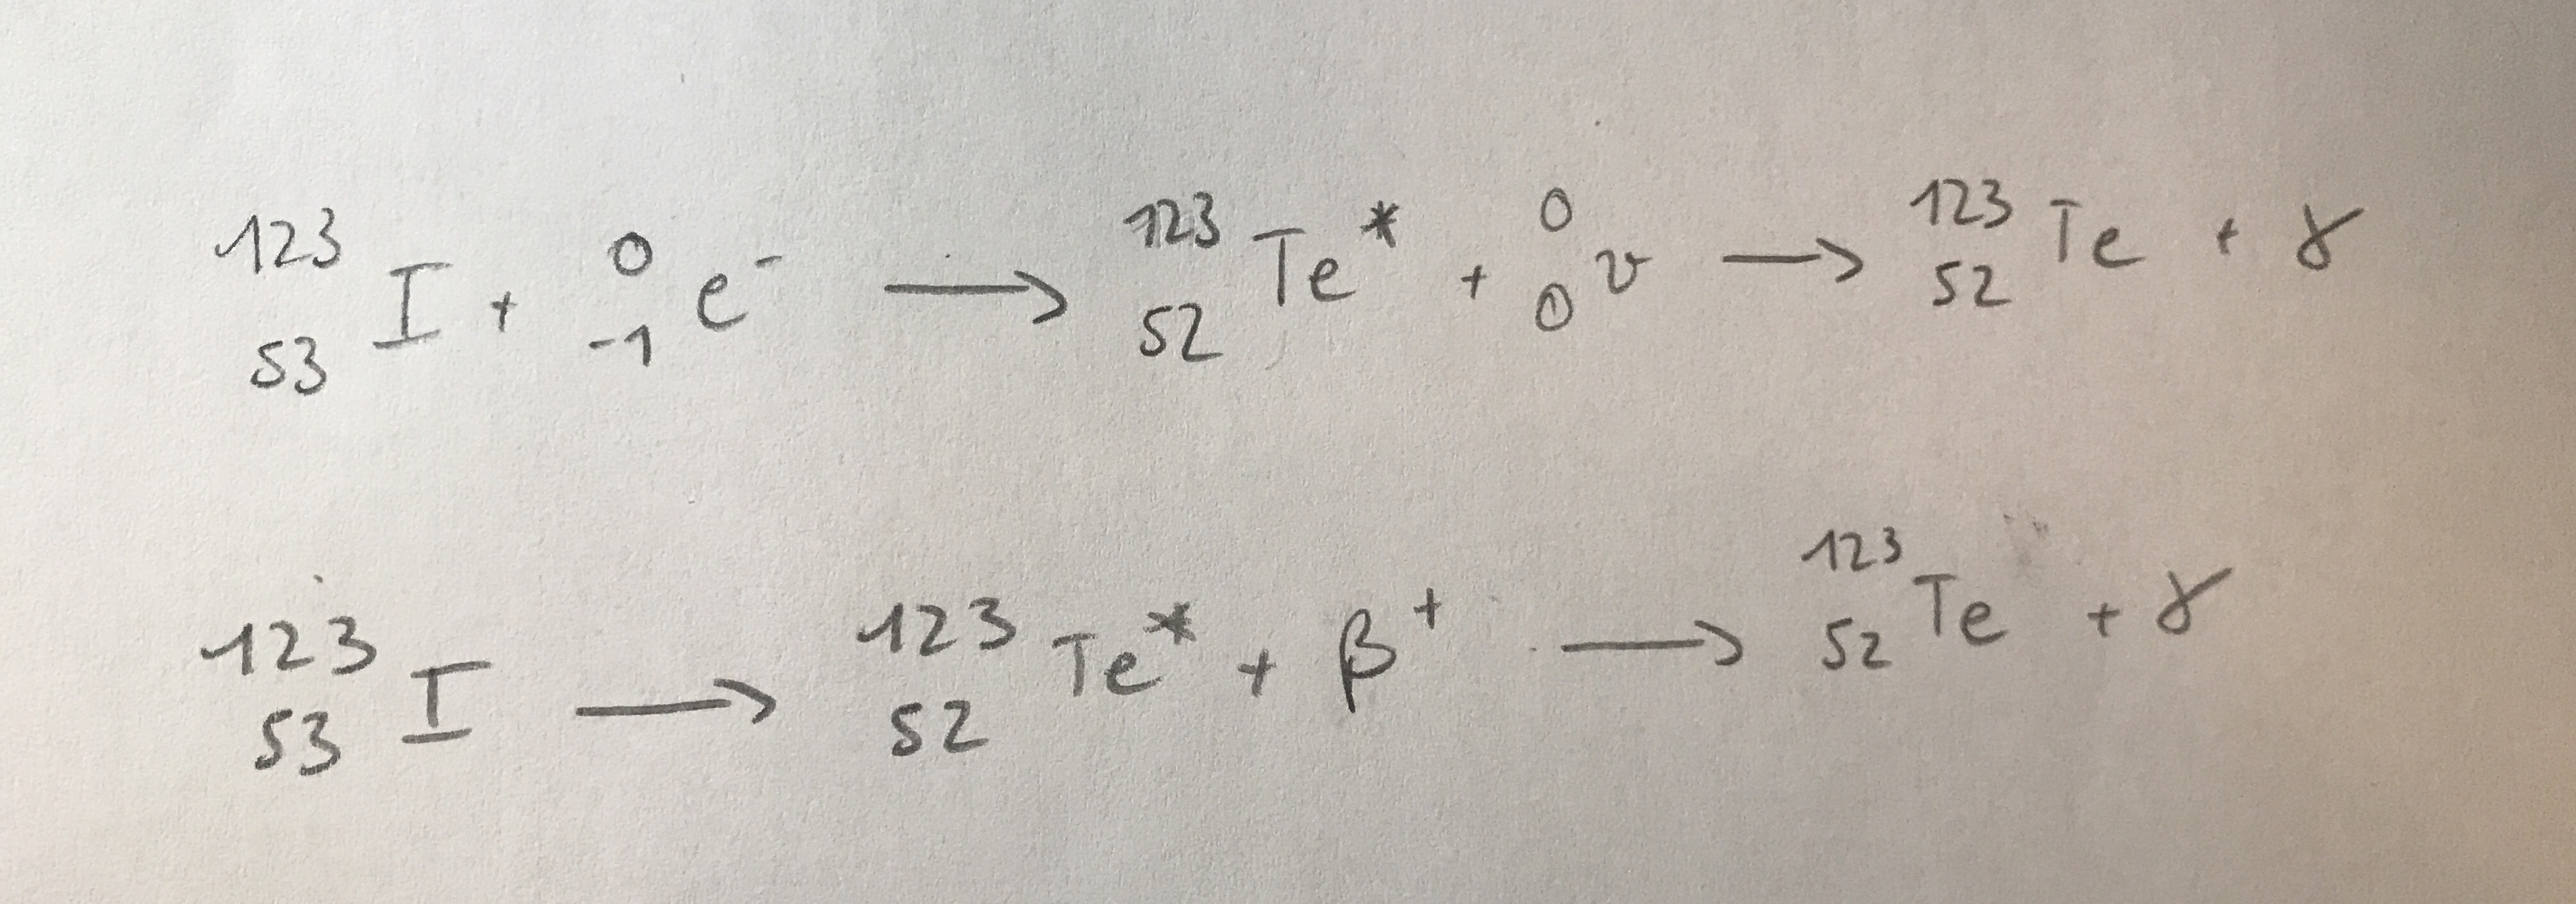 ¹²³₅₃I + ⁰₋₁e⁻ → ¹²³₅₂Te* + ⁰₀ν → ¹²³₅₂Te + γ
¹²³₅₃I → ¹²³₅₂Te* + β⁺ → ¹²³₅₂Te + γ